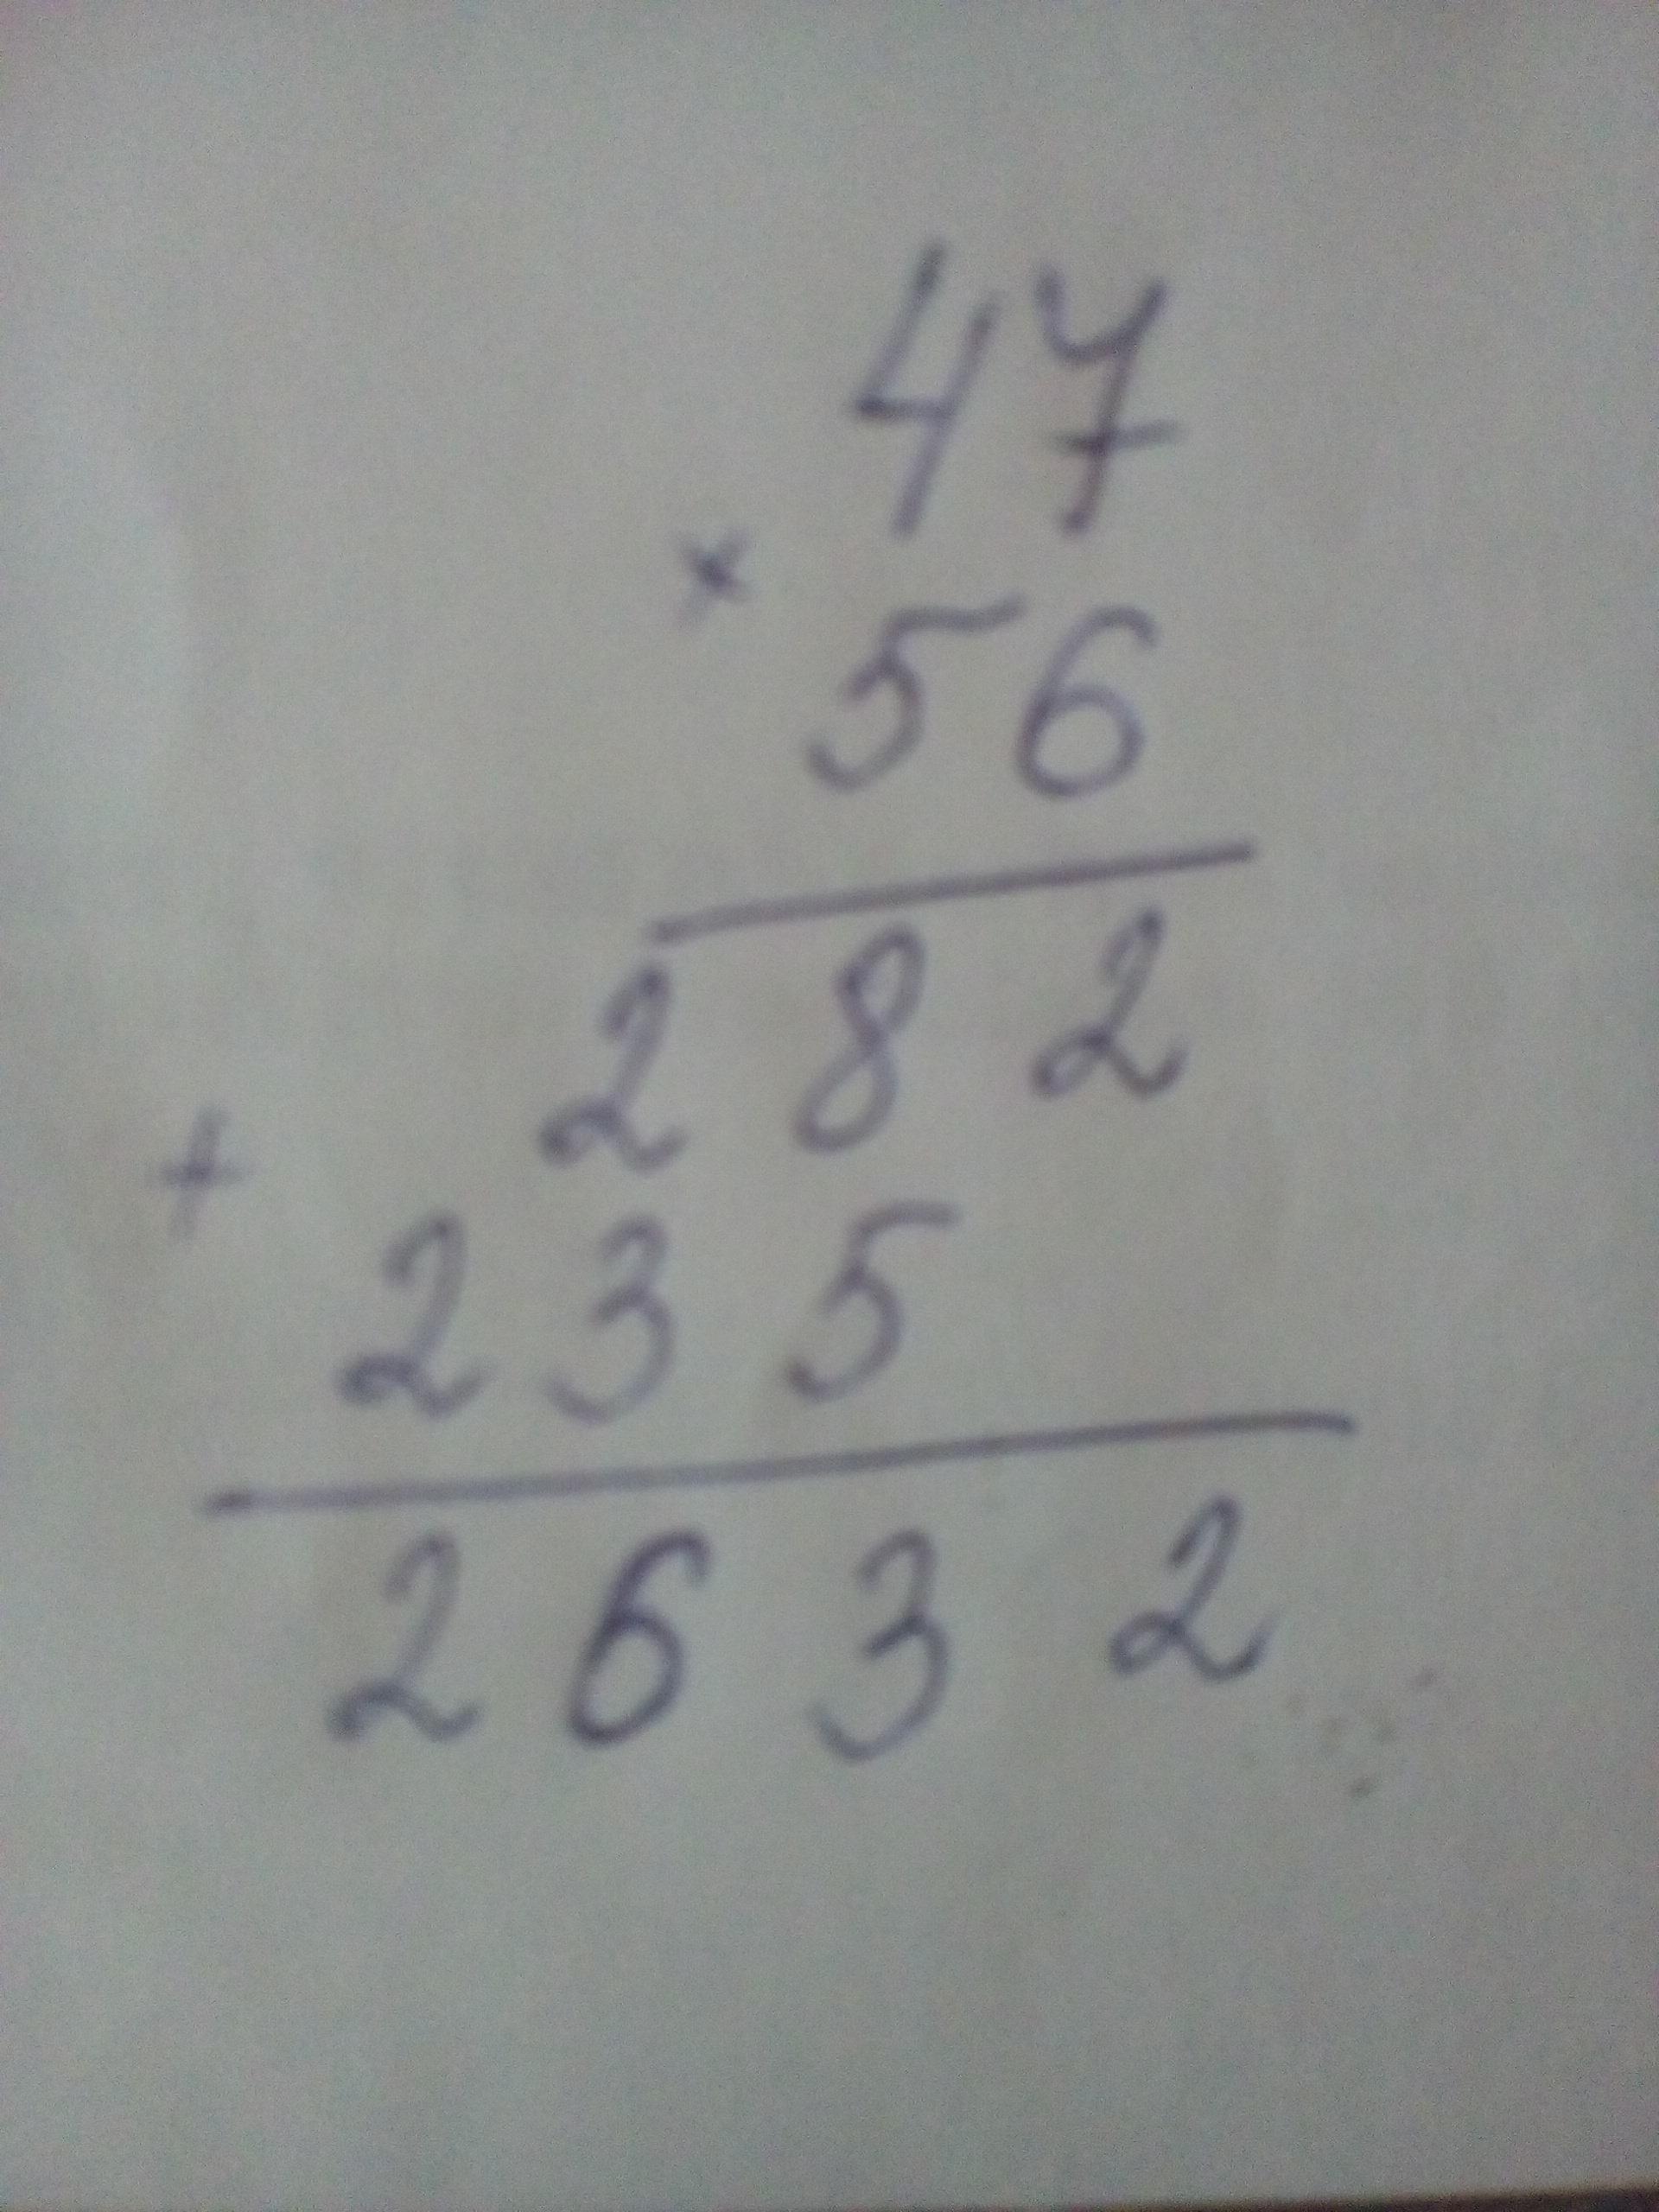 47
×
56
282
+
235
2632